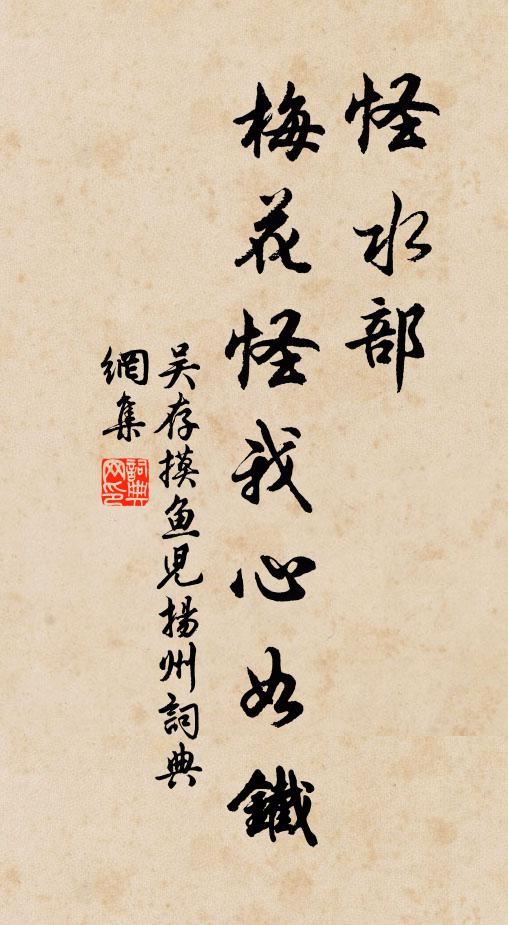 怪水部
梅花怪我心如鐵
吴存摸鱼児揚州詞典
網集
詞典网印